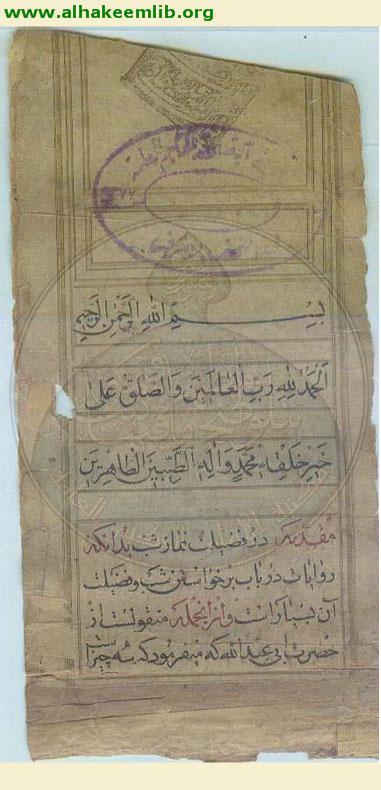 www.alhakeemlib.org
بسم الله الرحمن الرحیم
الحمد لله رب العالمین والصلوة علی
خیر خلقه محمد وآله الطیبین الطاهرین
مقدمه در فضیلت نماز شب بدانکه
روایات در باب برخواستن شب و فضیلت
آن بسیار است و از انجمله منقولست از
حضرت ابی عبد الله که میفرمود که سه چیز است